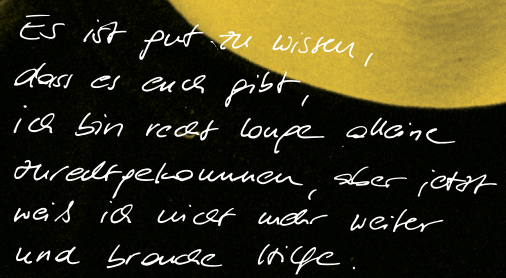 Es ist gut zu wissen,
dass es euch gibt,
ich bin recht lange alleine
zurechtgekommen, aber jetzt
weiß ich nicht mehr weiter
und brauche Hilfe.